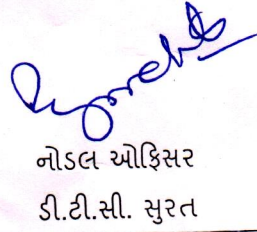 નોડલ ઓફિસર
ડી.ટી.સી. સુરત